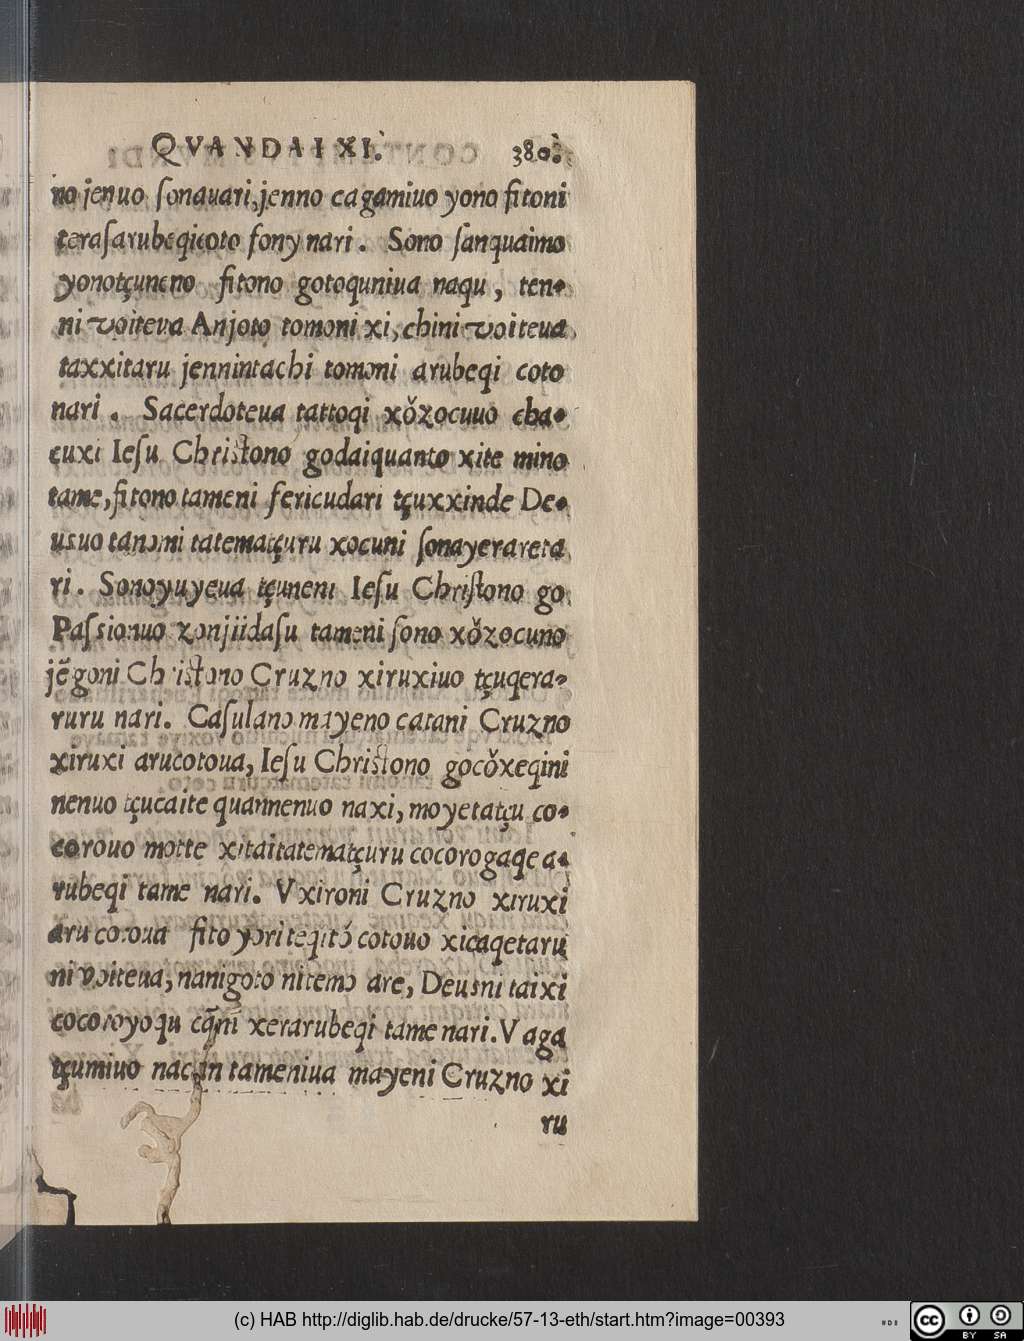 QVANDAI XI. 380.
no jenuo ſonauari, jenno cagamiuo yono fitoni
teraſarubeqicoto fony nari. Sono ſanquaimo
yonotçuneno fitono gotoquniua naqu, ten-
ni voiteua Anjoto tomoni xi, chini voiteua
taxxitaru jennintachi tomoni arubeqi coto
nari. Sacerdoteua tattoqi xǒzocuuo cha-
cuxi Ieſu Chriſtono godaiquanto xite mino
tame, fitono tameni fericudari tçuxxinde De-
usuo tanomi tatematçuru xocuni ſonayerareta
ri. Sonoyuyeua tçuneni Ieſu Chriſtono go
Paſsionuo zonjiidaſu tameni ſono xǒzocuno
jẽgoni Chriſtono Cruzno xiruxiuo tçuqera-
ruru nari. Caſulano mayeno catani Cruzno
xiruxi arucotoua, Ieſu Chriſtono gocǒxeqini
nenuo tçucaite quannenuo naxi, moyetatçu co-
corouo motte xitaitatematçuru cocorogaqe a-
rubeqi tame nari. Vxironi Cruzno xiruxi
aru cotoua fito yori teqitó cotouo xicaqetaru
ni voiteua, nanigoto nitemo are, Deusni taixi
cocoroyoqu cãni xerarubeqi tame nari. Vaga
tçumiuo nacan tameniua mayeni Cruzno xi
ru
(c) HAB http://diglib.hab.de/drucke/57-13-eth/start.htm?image=00393
cc
BY SA